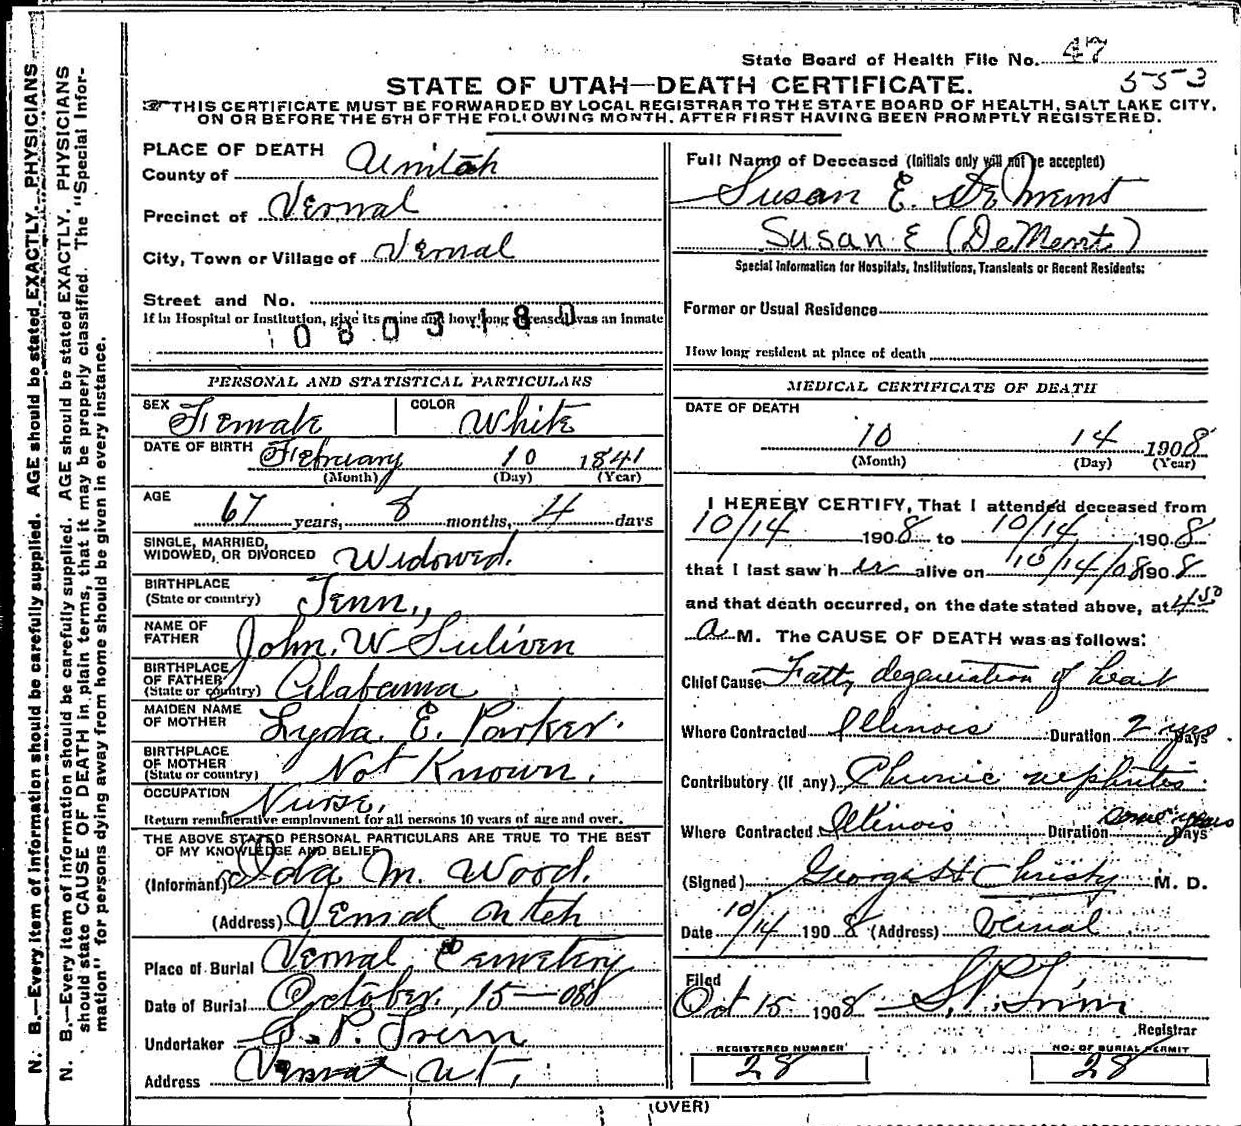 State Board of Health File No. 47
553
STATE OF UTAH—DEATH CERTIFICATE.
THIS CERTIFICATE MUST BE FORWARDED BY LOCAL REGISTRAR TO THE STATE BOARD OF HEALTH, SALT LAKE CITY,
ON OR BEFORE THE 5TH OF THE FOLLOWING MONTH, AFTER FIRST HAVING BEEN PROMPTLY REGISTERED.
N. B.—Every item of information should be carefully supplied. AGE should be stated EXACTLY. PHYSICIANS
N. B.—Every item of information should be carefully supplied. AGE should be stated EXACTLY. PHYSICIANS
should state CAUSE OF DEATH in plain terms, that it may be properly classified. The "Special Infor-
mation" for persons dying away from home should be given in every instance.
PLACE OF DEATH
County of Uintah
Precinct of Vernal
City, Town or Village of Vernal
Street and No.
If in Hospital or Institution, give its name and how long deceased was an inmate
0803180
PERSONAL AND STATISTICAL PARTICULARS
SEX Female COLOR White
DATE OF BIRTH February 10 1841
(Month) (Day) (Year)
AGE
67 years, 8 months, 4 days
SINGLE, MARRIED,
WIDOWED, OR DIVORCED Widowed.
BIRTHPLACE
(State or country) Tenn.,
NAME OF
FATHER John. W Suliven
BIRTHPLACE
OF FATHER
(State or country) Alabama
MAIDEN NAME
OF MOTHER Lyda. E. Parker.
BIRTHPLACE
OF MOTHER
(State or country) Not Known.
OCCUPATION Nurse.
Return remunerative employment for all persons 10 years of age and over.
THE ABOVE STATED PERSONAL PARTICULARS ARE TRUE TO THE BEST
OF MY KNOWLEDGE AND BELIEF
(Informant) Ida M. Wood.
(Address) Vernal Utah
Place of Burial Vernal Cemetery
Date of Burial October. 15—08
Undertaker S. P. Trim
Address Vernal Ut.
Full Name of Deceased (Initials only will not be accepted)
Susan E. DeMemt
Susan E (DeMemt)
Special Information for Hospitals, Institutions, Transients or Recent Residents:
Former or Usual Residence
How long resident at place of death
MEDICAL CERTIFICATE OF DEATH
DATE OF DEATH
10 14 1908
(Month) (Day) (Year)
I HEREBY CERTIFY, That I attended deceased from
10/14 1908 to 10/14 1908
that I last saw her alive on 10/14/08 1908
and that death occurred, on the date stated above, at 4 50
a M. The CAUSE OF DEATH was as follows:
Chief Cause Fatty degeneration of heart
Where Contracted Illinois Duration 2 yrs Days
Contributory (If any) Chronic nephritis.
Where Contracted Illinois Duration some years Days
(Signed) George H Christy M. D.
Date 10/14 1908 (Address) Vernal
Filed
Oct 15 1908 S. P. Trim
Registrar
REGISTERED NUMBER
28
NO. OF BURIAL PERMIT
28
(OVER)